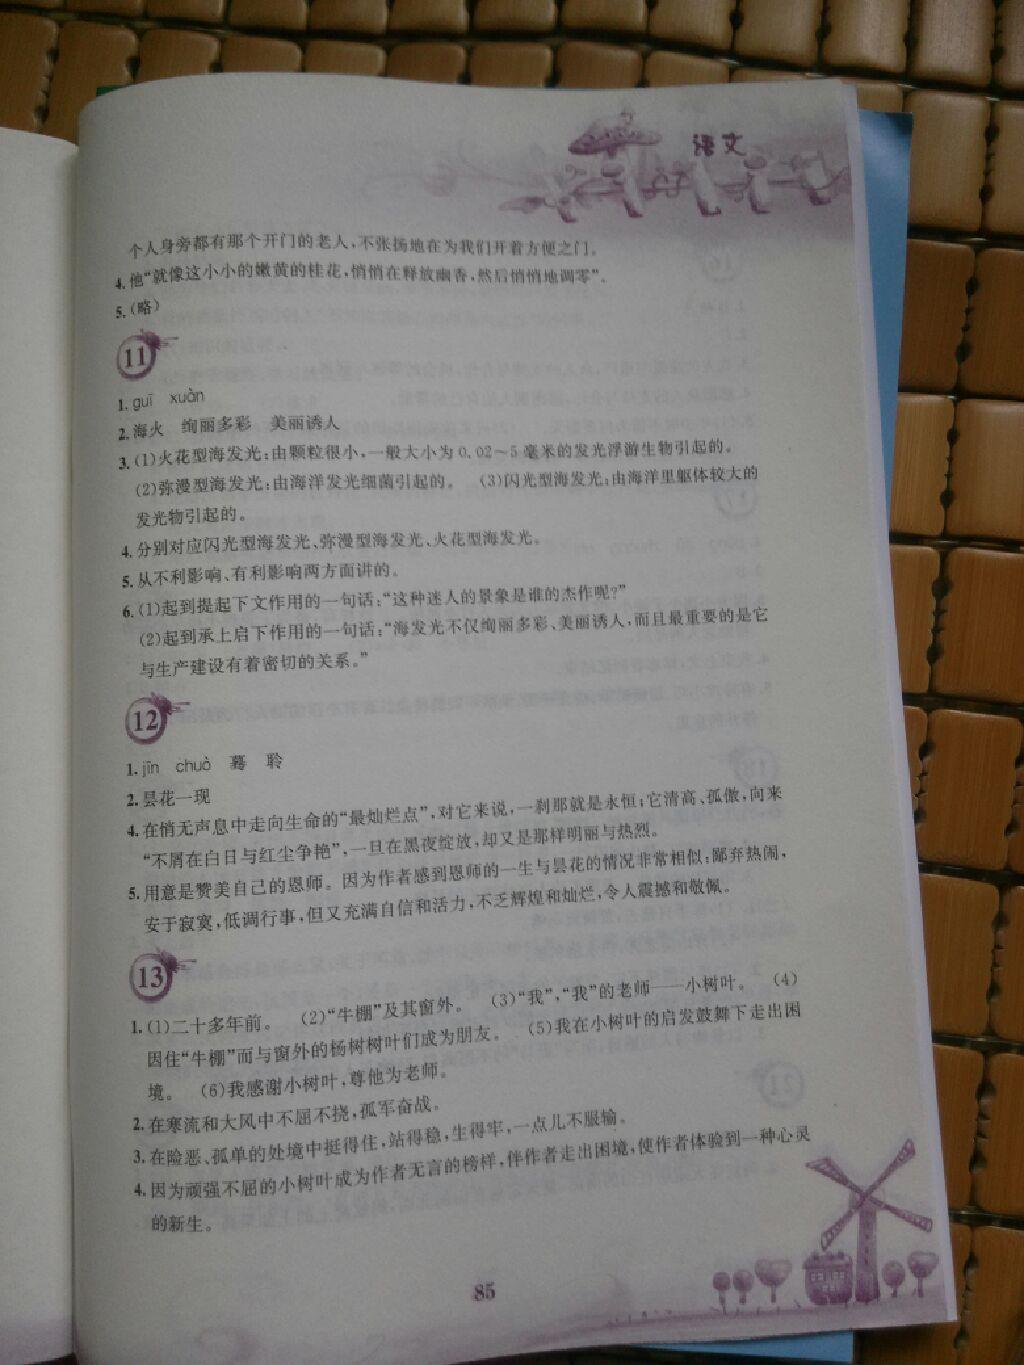 语文
个人身旁都有那个开门的老人,不张扬地在为我们开着方便之门。
4.他“就像这小小的嫩黄的桂花,悄悄在释放幽香,然后悄悄地凋零”。
5.(略)
11
1.guī xuàn
2.海火 绚丽多彩 美丽诱人
3.(1)火花型海发光:由颗粒很小,一般大小为0.02~5毫米的发光浮游生物引起的。
(2)弥漫型海发光:由海洋发光细菌引起的。 (3)闪光型海发光:由海洋里躯体较大的
发光物引起的。
4.分别对应闪光型海发光、弥漫型海发光、火花型海发光。
5.从不利影响、有利影响两方面讲的。
6.(1)起到提起下文作用的一句话:“这种迷人的景象是谁的杰作呢?”
(2)起到承上启下作用的一句话:“海发光不仅绚丽多彩、美丽诱人,而且最重要的是它
与生产建设有着密切的关系。”
12
1.jīn chuò 蓦 聆
2.昙花一现
4.在悄无声息中走向生命的“最灿烂点”,对它来说,一刹那就是永恒;它清高、孤傲,向来
“不屑在白日与红尘争艳”,一旦在黑夜绽放,却又是那样明丽与热烈。
5.用意是赞美自己的恩师。因为作者感到恩师的一生与昙花的情况非常相似:鄙弃热闹,
安于寂寞,低调行事,但又充满自信和活力,不乏辉煌和灿烂,令人震撼和敬佩。
13
1.(1)二十多年前。 (2)“牛棚”及其窗外。 (3)“我”,“我”的老师——小树叶。 (4)
因住“牛棚”而与窗外的杨树树叶们成为朋友。 (5)我在小树叶的启发鼓舞下走出困
境。 (6)我感谢小树叶,尊他为老师。
2.在寒流和大风中不屈不挠,孤军奋战。
3.在险恶、孤单的处境中挺得住,站得稳,生得牢,一点儿不服输。
4.因为顽强不屈的小树叶成为作者无言的榜样,伴作者走出困境,使作者体验到一种心灵
的新生。
85